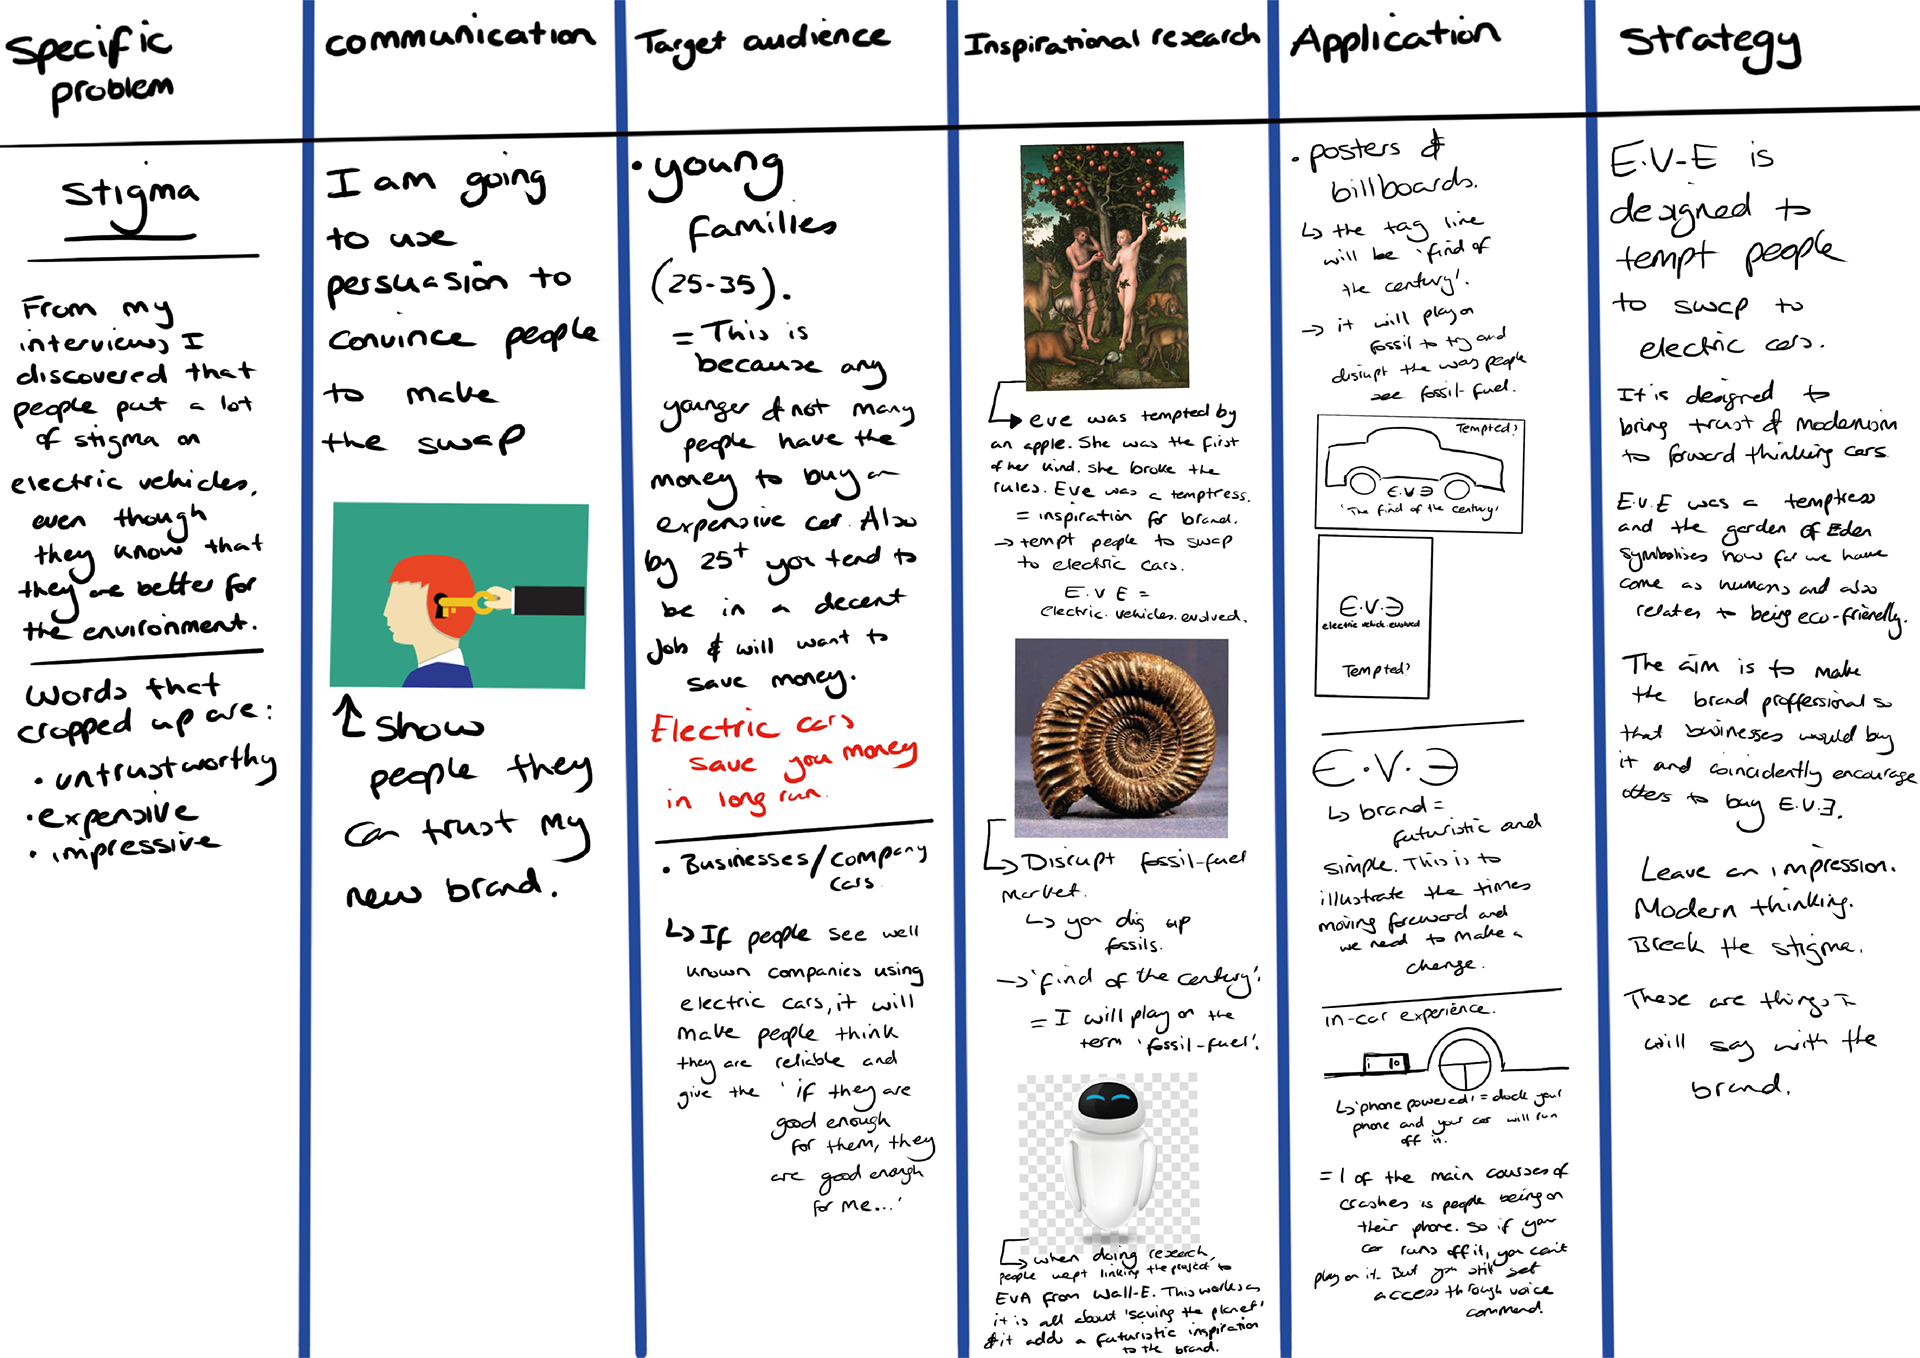 Specific
problem
Stigma
From my
interviews I
discovered that
people put a lot
of stigma on
electric vehicles,
even though
they know that
they are better for
the environment.
Words that
cropped up are:
• untrustworthy
• expensive
• impressive
communication
I am going
to use
persuasion to
convince people
to make
the swap
show
people they
can trust my
new brand.
Target audience
• young
families
(25-35).
= This is
because any
younger & not many
people have the
money to buy an
expensive car. Also
by 25+ you tend to
be in a decent
job & will want to
save money.
Electric cars
save you money
in long run.
• Businesses/company
cars.
↳ If people see well
known companies using
electric cars, it will
make people think
they are reliable and
give the 'if they are
good enough
for them, they
are good enough
for me...'
Inspirational research
eve was tempted by
an apple. She was the first
of her kind. She broke the
rules. Eve was a temptress.
= inspiration for brand.
→ tempt people to swap
to electric cars.
E.V E =
electric.vehicles.evolved.
Disrupt fossil-fuel
market.
↳ you dig up
fossils.
→ 'find of the century'.
= I will play on the
term 'fossil-fuel'.
when doing research,
people kept linking the project to
EVA from Wall-E. This works as
it is all about 'saving the planet'
& it adds a futuristic inspiration
to the brand.
Application
• posters &
billboards.
↳ the tag line
will be 'find of
the century'.
→ it will play on
fossil to try and
disrupt the was people
see fossil-fuel.
Tempted?
E.V.Ǝ
'The find of the century'
E.V.Ǝ
electric vehicle.evolved
Tempted?
E.V.Ǝ
↳ brand =
futuristic and
simple. This is to
illustrate the times
moving foreward and
we need to make a
change.
in-car experience.
↳ 'phone powered' = dock your
phone and your car will run
off it.
= 1 of the main courses of
crashes is people being on
their phone. So if your
car runs off it, you can't
play on it. But you still get
access through voice
command.
Strategy
E.V-E is
designed to
tempt people
to swap to
electric cars.
It is designed to
bring trust & modernism
to forward thinking cars.
E.V.E was a temptress
and the garden of Eden
symbolises how far we have
come as humans and also
relates to being eco-friendly.
The aim is to make
the brand proffessional so
that businesses would buy
it and coincidently encourage
others to buy E.V.Ǝ.
Leave an impression.
Modern thinking.
Break the stigma.
These are things I
will say with the
brand.